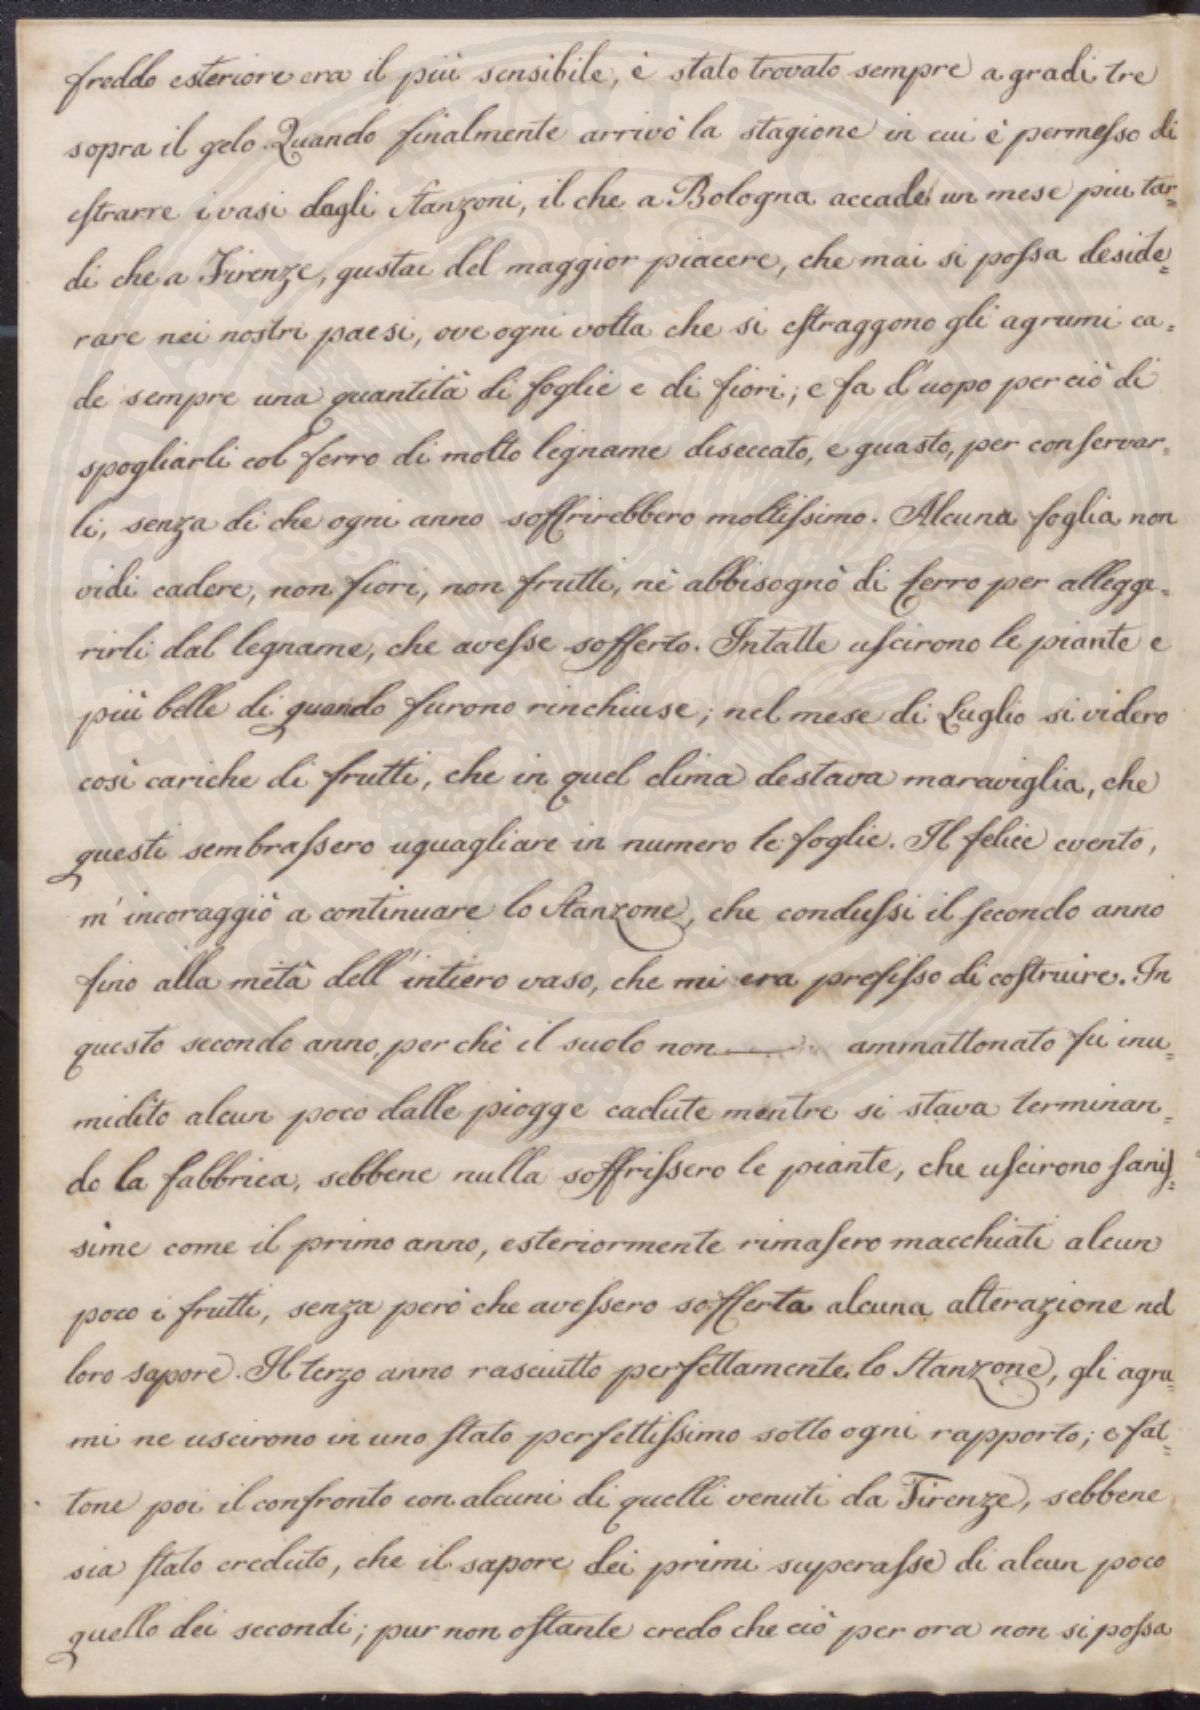 freddo esteriore era il più sensibile, è stato trovato sempre a gradi tre
sopra il gelo. Quando finalmente arrivò la stagione in cui è permesso di
estrarre i vasi dagli stanzoni, il che a Bologna accade un mese piu tar=
di che a Firenze, gustai del maggior piacere, che mai si possa deside=
rare nei nostri paesi, ove ogni volta che si estraggono gli agrumi ca=
de sempre una quantità di foglie e di fiori; e fa d'uopo perciò di
spogliarli col ferro di molto legname diseccato, e guasto, per conservar=
li, senza di che ogni anno soffrirebbero moltissimo. Alcuna foglia non
vidi cadere, non fiori, non frutti, nè abbisognò di ferro per allegge=
rirli dal legname, che avesse sofferto. Intatte uscirono le piante e
più belle di quando furono rinchiuse; nel mese di Luglio si videro
così cariche di frutti, che in quel clima destava maraviglia, che
questi sembrassero uguagliare in numero le foglie. Il felice evento,
m'incoraggiò a continuare lo stanzone, che condussi il secondo anno
fino alla metà dell'intiero vaso, che mi era prefisso di costruire. In
questo secondo anno, perchè il suolo non ammattonato fu inu=
midito alcun poco dalle piogge cadute mentre si stava terminan=
do la fabbrica, sebbene nulla soffrissero le piante, che uscirono sanis=
sime come il primo anno, esteriormente rimasero macchiati alcun
poco i frutti, senza però che avessero sofferta alcuna alterazione nel
loro sapore. Il terzo anno rasciutto perfettamente lo stanzone, gli agru=
mi ne uscirono in uno stato perfettissimo sotto ogni rapporto; e fat=
tone poi il confronto con alcuni di quelli venuti da Firenze, sebbene
sia stato creduto, che il sapore dei primi superasse di alcun poco
quello dei secondi; pur non ostante credo che ciò per ora non si possa